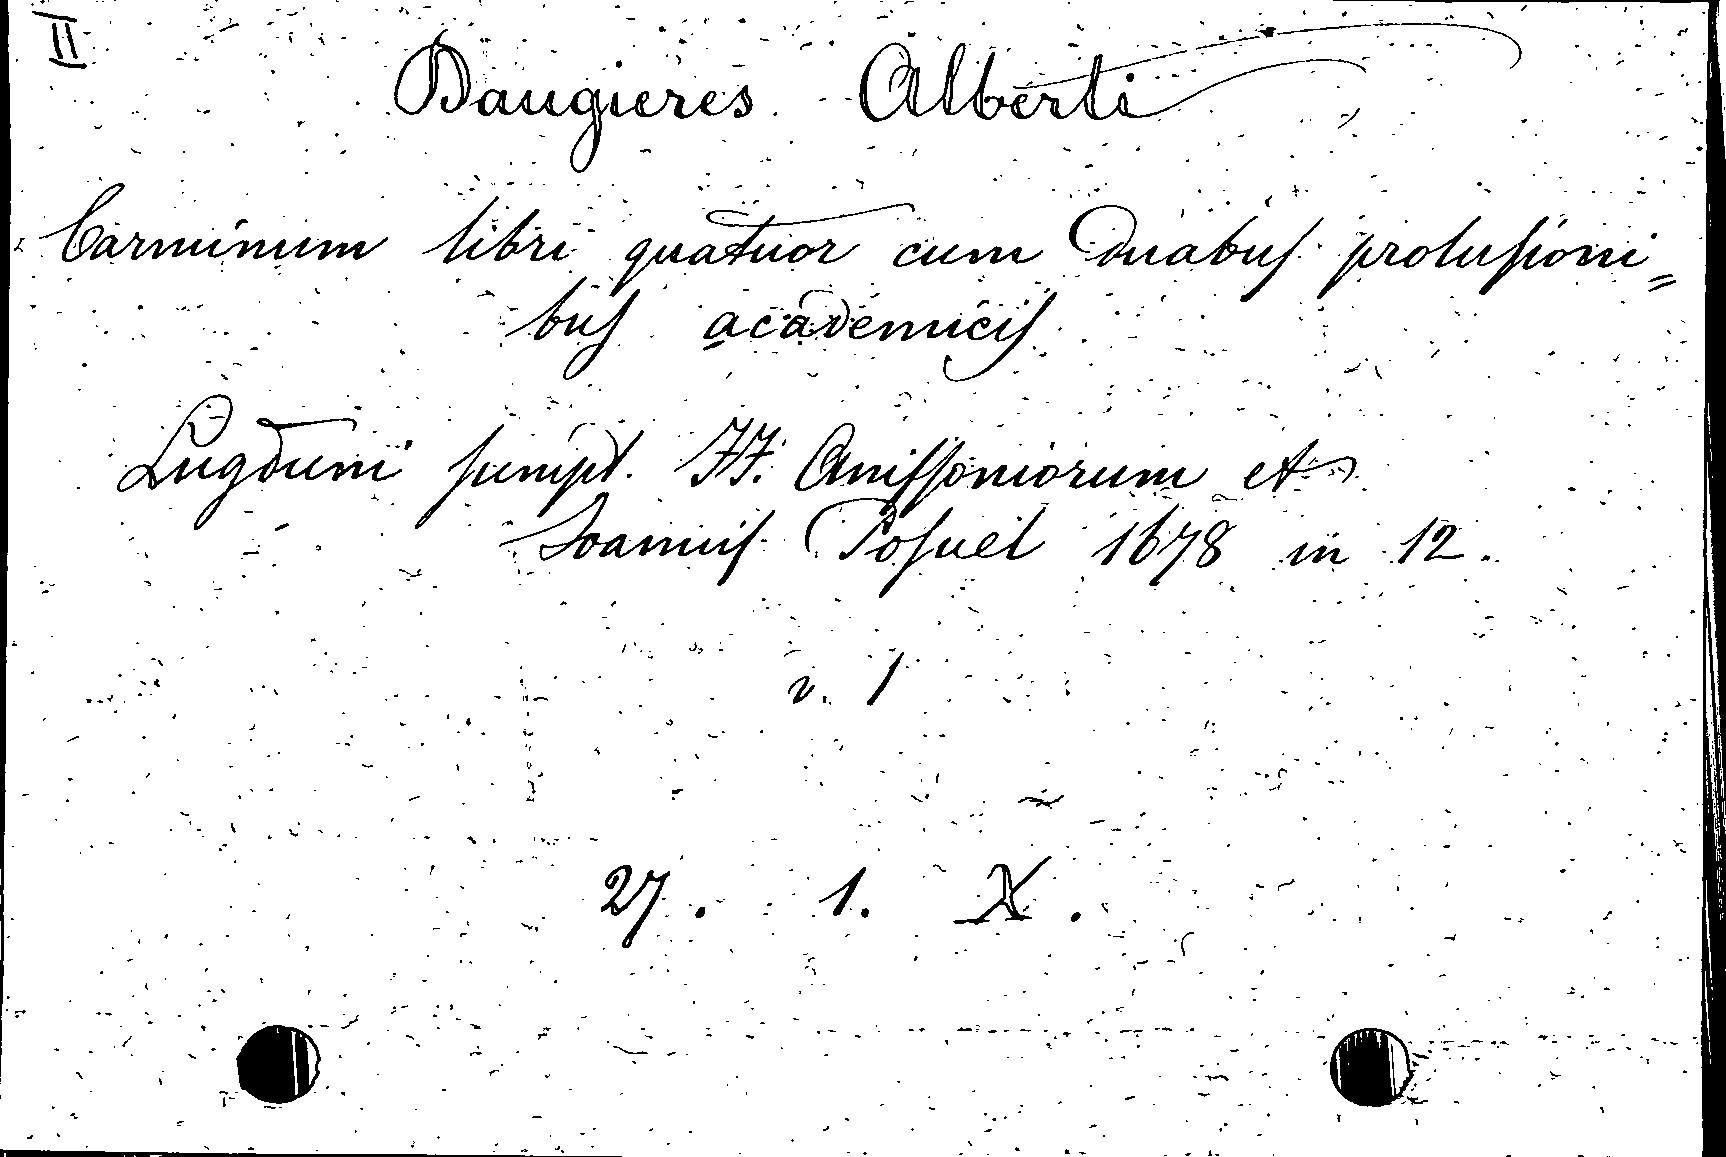 II
Daugieres Alberti
Carminum libri quatuor cum duabus prolusioni=
bus academicis
Lugduni sumpt. JJ. Anissoniorum et
Joannis Posuel 1678 in 12.
v. 1
27. 1. X.